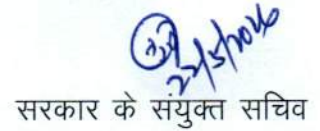 22/5/2026
सरकार के संयुक्त सचिव